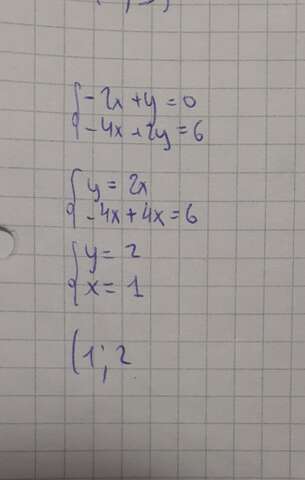 { -2x + y = 0
-4x + 2y = 6
{ y = 2x
-4x + 4x = 6
{ y = 2
x = 1
(1; 2